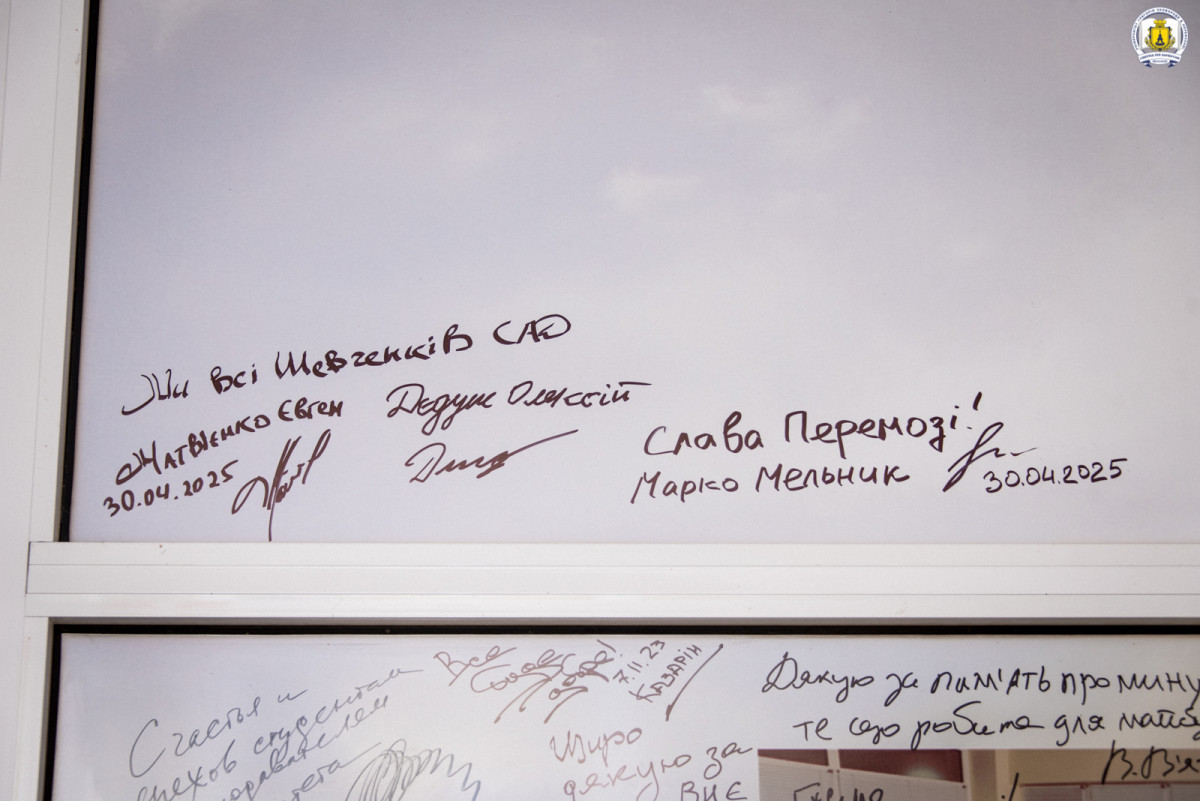 Ми всі Шевченків САД
Матвієнко Євген
30.04.2025
Дедуш Олексій
Слава Перемозі!
Марко Мельник
30.04.2025
Все
Будет
Добре!
7.11.23
Казарін
Счастья и
успехов студентам
Щиро
дякую за
Дякую за пам'ять про мину
те що робите для майбу
В. В'я